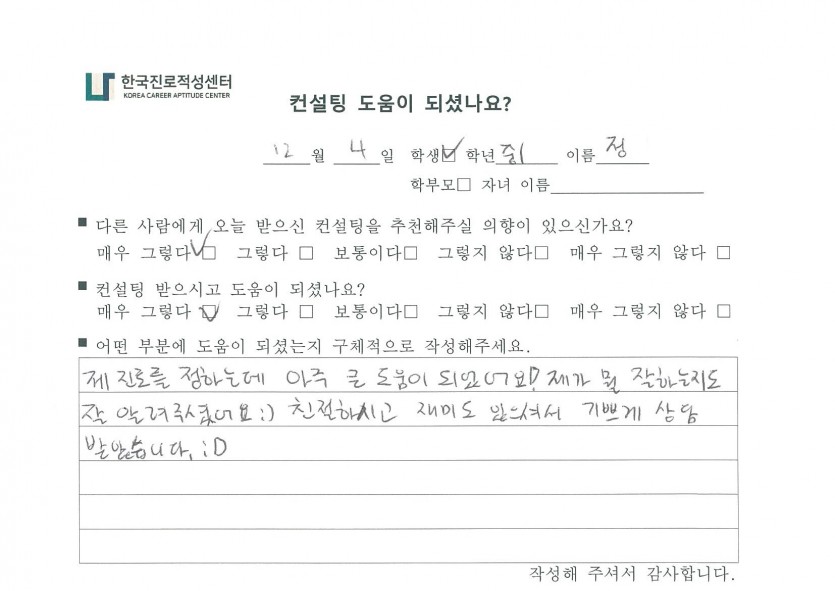 한국진로적성센터
KOREA CAREER APTITUDE CENTER
컨설팅 도움이 되셨나요?
12월 4일 학생☑ 학년 중1 이름 정
학부모□ 자녀 이름
■ 다른 사람에게 오늘 받으신 컨설팅을 추천해주실 의향이 있으신가요?
매우 그렇다☑ 그렇다 □ 보통이다□ 그렇지 않다□ 매우 그렇지 않다 □
■ 컨설팅 받으시고 도움이 되셨나요?
매우 그렇다☑ 그렇다 □ 보통이다□ 그렇지 않다□ 매우 그렇지 않다 □
■ 어떤 부분에 도움이 되셨는지 구체적으로 작성해주세요.
제 진로를 정하는데 아주 큰 도움이 되었어요! 제가 뭘 잘하는지도
잘 알려주셨어요:) 친절하시고 재미도 있으셔서 기쁘게 상담
받았습니다. :D
작성해 주셔서 감사합니다.